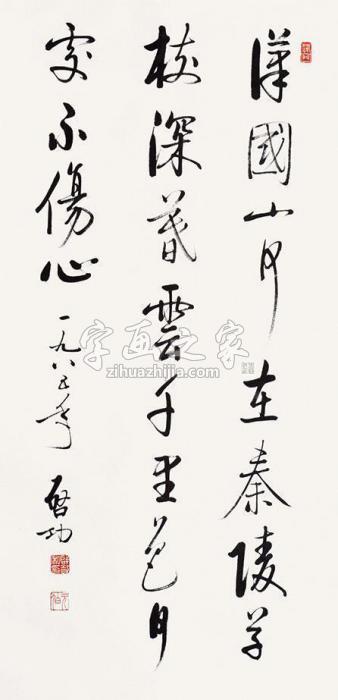 漢國山河在秦陵草
樹深暮雲千里色無
處不傷心 一九八五年 啓功
字画之家
www.zihuazhijia.com